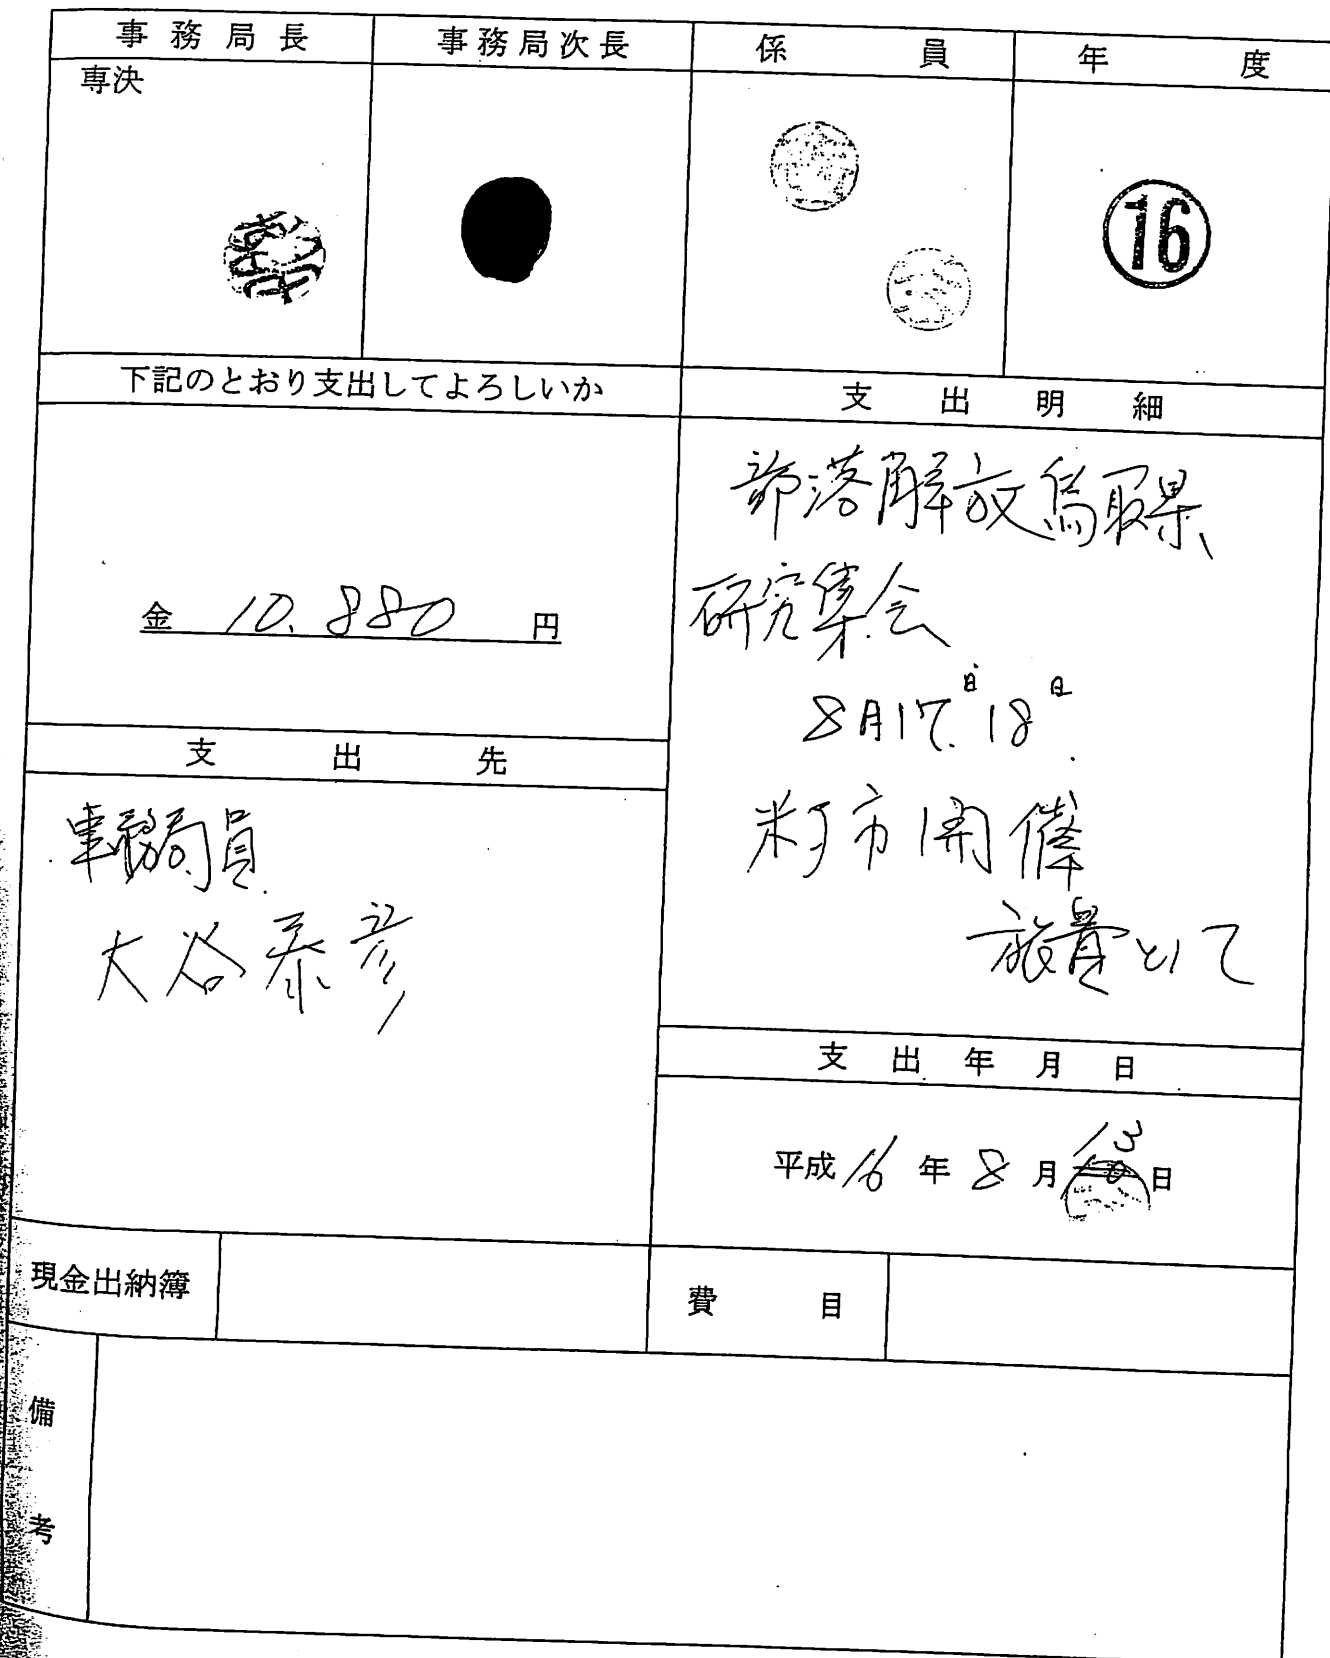 事務局長 事務局次長 係員 年度
専決
16
下記のとおり支出してよろしいか
金 10.880 円
支出先
事務局員
大谷泰彦
支出明細
部落解放鳥取県
研究集会
8月17日.18日.
米子市開催
旅費として
支出年月日
平成16年8月13日
現金出納簿
費目
備考